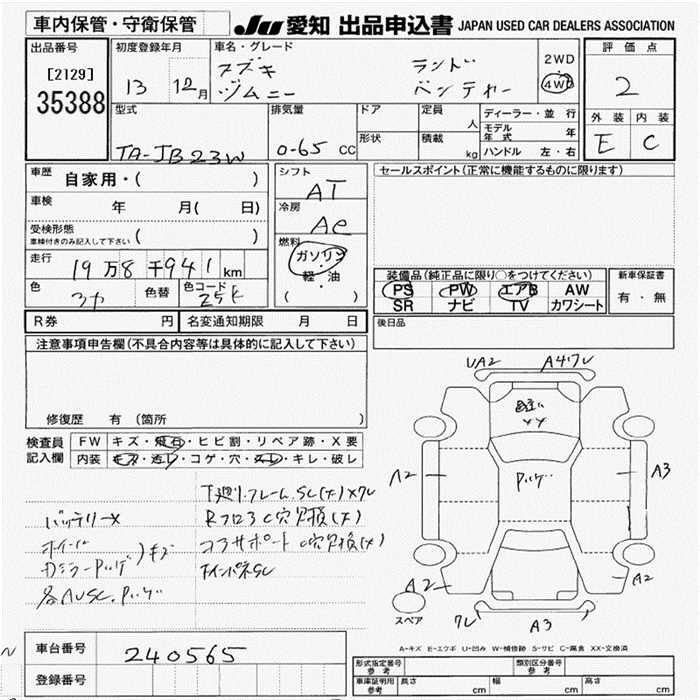 車内保管・守衛保管
JU 愛知 出品申込書 JAPAN USED CAR DEALERS ASSOCIATION
出品番号
[2129]
35388
初度登録年月
13 12月
車名・グレード
スズキ ランド
ジムニー ベンチャー
2WD
4WD
評価点
2
外装 内装
E C
型式
TA-JB23W
排気量
0-65 CC
ドア
形状
定員
人
積載
kg
ディーラー・並行
モデル年式 年
ハンドル 左・右
車歴 自家用・( )
車検 年 月( 日)
受検形態
車検付きのみ記入して下さい ( )
走行 19万8千941km
色
色替
色コード
25K
シフト
AT
冷房
AC
燃料
ガソリン
・
軽・油
( )
セールスポイント(正常に機能するものに限ります)
装備品(純正品に限り○をつけてください)
PS PW エアB AW
SR ナビ TV カワシート
新車保証書
有・無
R券 円
名変通知期限 月 日
後日品
注意事項申告欄(不具合内容等は具体的に記入して下さい)
修復歴 有 (箇所 )
検査員
記入欄
FW キズ・飛石・ヒビ割・リペア跡・X要
内装 キズ・汚レ・コゲ・穴・スレ・キレ・破レ
下廻り.フレーム.SC(大)×クレ
バッテリー×
RフロアC穴欠損(大)
コラサポートC穴欠損(大)
キズ
インパネSC
UA2 A4ワレ
A2 A3
A2 A2
スペア
ワレ A3
A-キズ E-エクボ U-凹み W-補修跡 S-サビ C-腐食 XX-交換済
車台番号 240565
登録番号
形式指定番号
参考
類別区分番号
参考
車庫証明用
参考
長さ cm 幅 cm 高さ cm